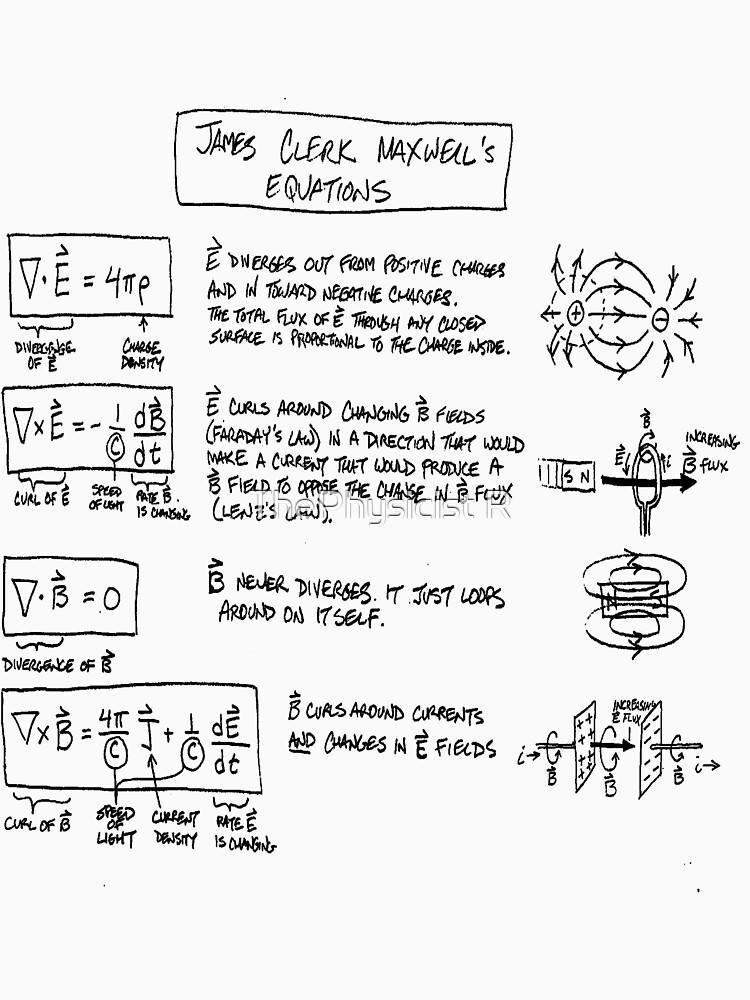 JAMES CLERK MAXWELL'S
EQUATIONS
∇·E⃗ = 4πρ
DIVERGENCE
OF E⃗
CHARGE
DENSITY
E⃗ DIVERGES OUT FROM POSITIVE CHARGES
AND IN TOWARD NEGATIVE CHARGES.
THE TOTAL FLUX OF E⃗ THROUGH ANY CLOSED
SURFACE IS PROPORTIONAL TO THE CHARGE INSIDE.
+ −
∇×E⃗ = - 1/C dB⃗/dt
CURL OF E⃗
SPEED
OF LIGHT
RATE B⃗
IS CHANGING
E⃗ CURLS AROUND CHANGING B⃗ FIELDS
(FARADAY'S LAW) IN A DIRECTION THAT WOULD
MAKE A CURRENT THAT WOULD PRODUCE A
B⃗ FIELD TO OPPOSE THE CHANGE IN B⃗ FLUX
(LENZ'S LAW).
S N
B⃗
E⃗
i
INCREASING
B⃗ FLUX
ThePhysicist R
∇·B⃗ = 0
DIVERGENCE OF B⃗
B⃗ NEVER DIVERGES. IT JUST LOOPS
AROUND ON ITSELF.
∇×B⃗ = 4π/C J⃗ + 1/C dE⃗/dt
CURL OF B⃗
SPEED
OF
LIGHT
CURRENT
DENSITY
RATE E⃗
IS CHANGING
B⃗ CURLS AROUND CURRENTS
AND CHANGES IN E⃗ FIELDS
INCREASING
E⃗ FLUX
i→
B⃗
B⃗
B⃗
i→